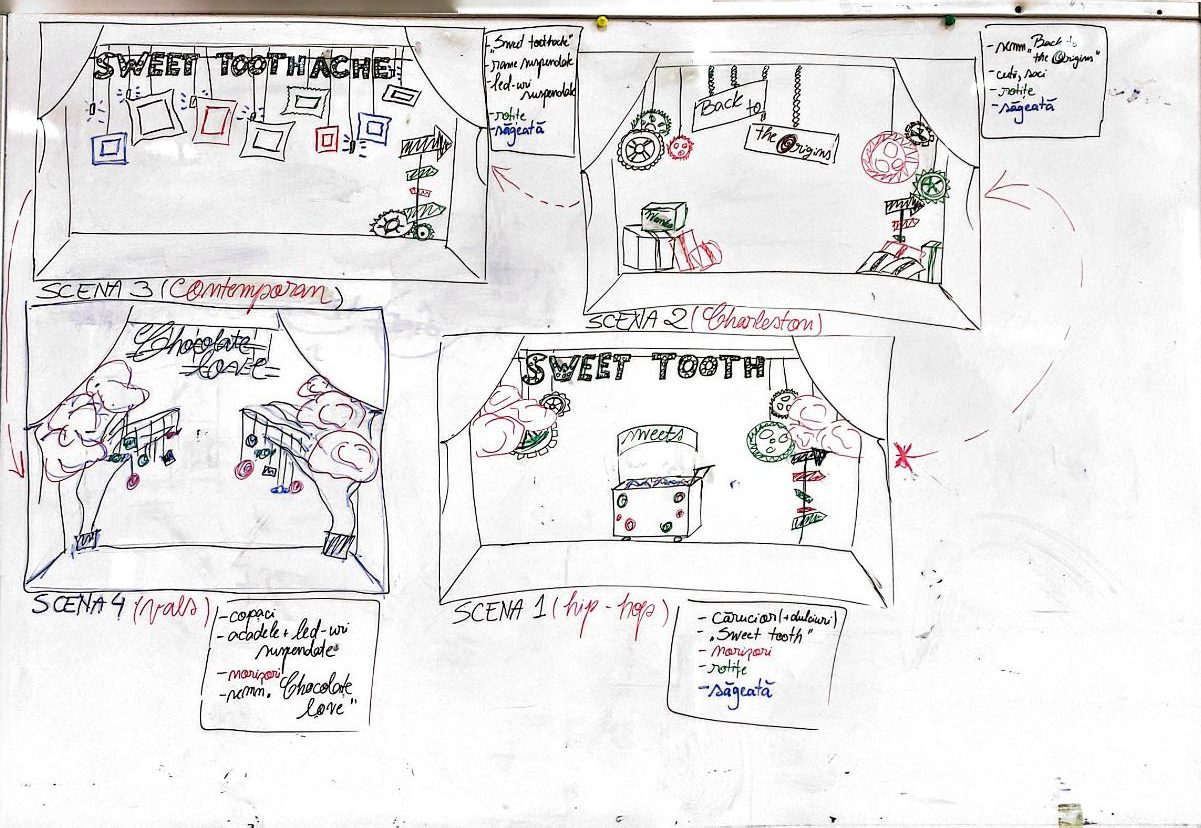 SWEET TOOTHACHE
- "Sweet toothache"
- rame suspendate
- led-uri
suspendate
- rotițe
- săgeată
SCENA 3 (Contemporan)
Back to
the Origins
- semn "Back to
the Origins"
- cutii, saci
- rotițe
- săgeată
SCENA 2 (Charleston)
Chocolate
LOVE
SCENA 4 (vals)
- copaci
- acadele + led-uri
suspendate
- norișori
- semn "Chocolate
love"
SWEET TOOTH
sweets
SCENA 1 (hip-hop)
- cărucior (+dulciuri)
- "Sweet tooth"
- norișori
- rotițe
- săgeată